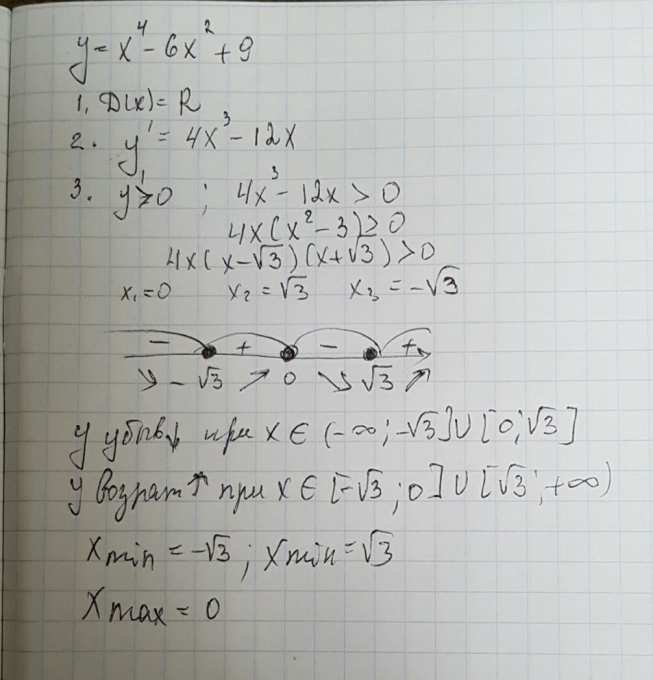 y = x⁴ - 6x² + 9
1. D(x) = R
2. y' = 4x³ - 12x
3. y' ≥ 0 ; 4x³ - 12x > 0
4x(x² - 3) ≥ 0
4x(x - √3)(x + √3) > 0
x₁ = 0 x₂ = √3 x₃ = -√3
- + - +
↘ -√3 ↗ 0 ↘ √3 ↗
y убыв↓ при x ∈ (-∞; -√3] ∪ [0; √3]
y возраст↑ при x ∈ [-√3; 0] ∪ [√3; +∞)
x min = -√3; x min = √3
x max = 0